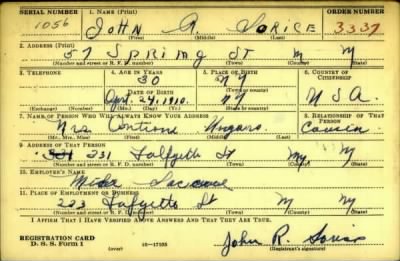 SERIAL NUMBER 1. NAME (Print) ORDER NUMBER
1056 JOHN R. SORICE 3337
(First) (Middle) (Last)
2. ADDRESS (Print)
57 SPRING ST N Y
(Number and street or R. F. D. number) (Town) (County) (State)
3. TELEPHONE 4. AGE IN YEARS 5. PLACE OF BIRTH 6. COUNTRY OF CITIZENSHIP
30 N Y
DATE OF BIRTH (Town or county)
Apr. 24, 1910. N Y U S A.
(Exchange) (Number) (Mo.) (Day) (Yr.) (State or country)
7. NAME OF PERSON WHO WILL ALWAYS KNOW YOUR ADDRESS 8. RELATIONSHIP OF THAT PERSON
Mrs Cousin
(Mr., Mrs., Miss) (First) (Middle) (Last)
9. ADDRESS OF THAT PERSON
231 St Ny Ny
(Number and street or R. F. D. number) (Town) (County) (State)
10. EMPLOYER'S NAME
11. PLACE OF EMPLOYMENT OR BUSINESS
Lafyette St N Y
(Number and street or R. F. D. number) (Town) (County) (State)
I AFFIRM THAT I HAVE VERIFIED ABOVE ANSWERS AND THAT THEY ARE TRUE.
REGISTRATION CARD
D. S. S. Form 1 (over) 16—17105 John R. Sorice
(Registrant's signature)